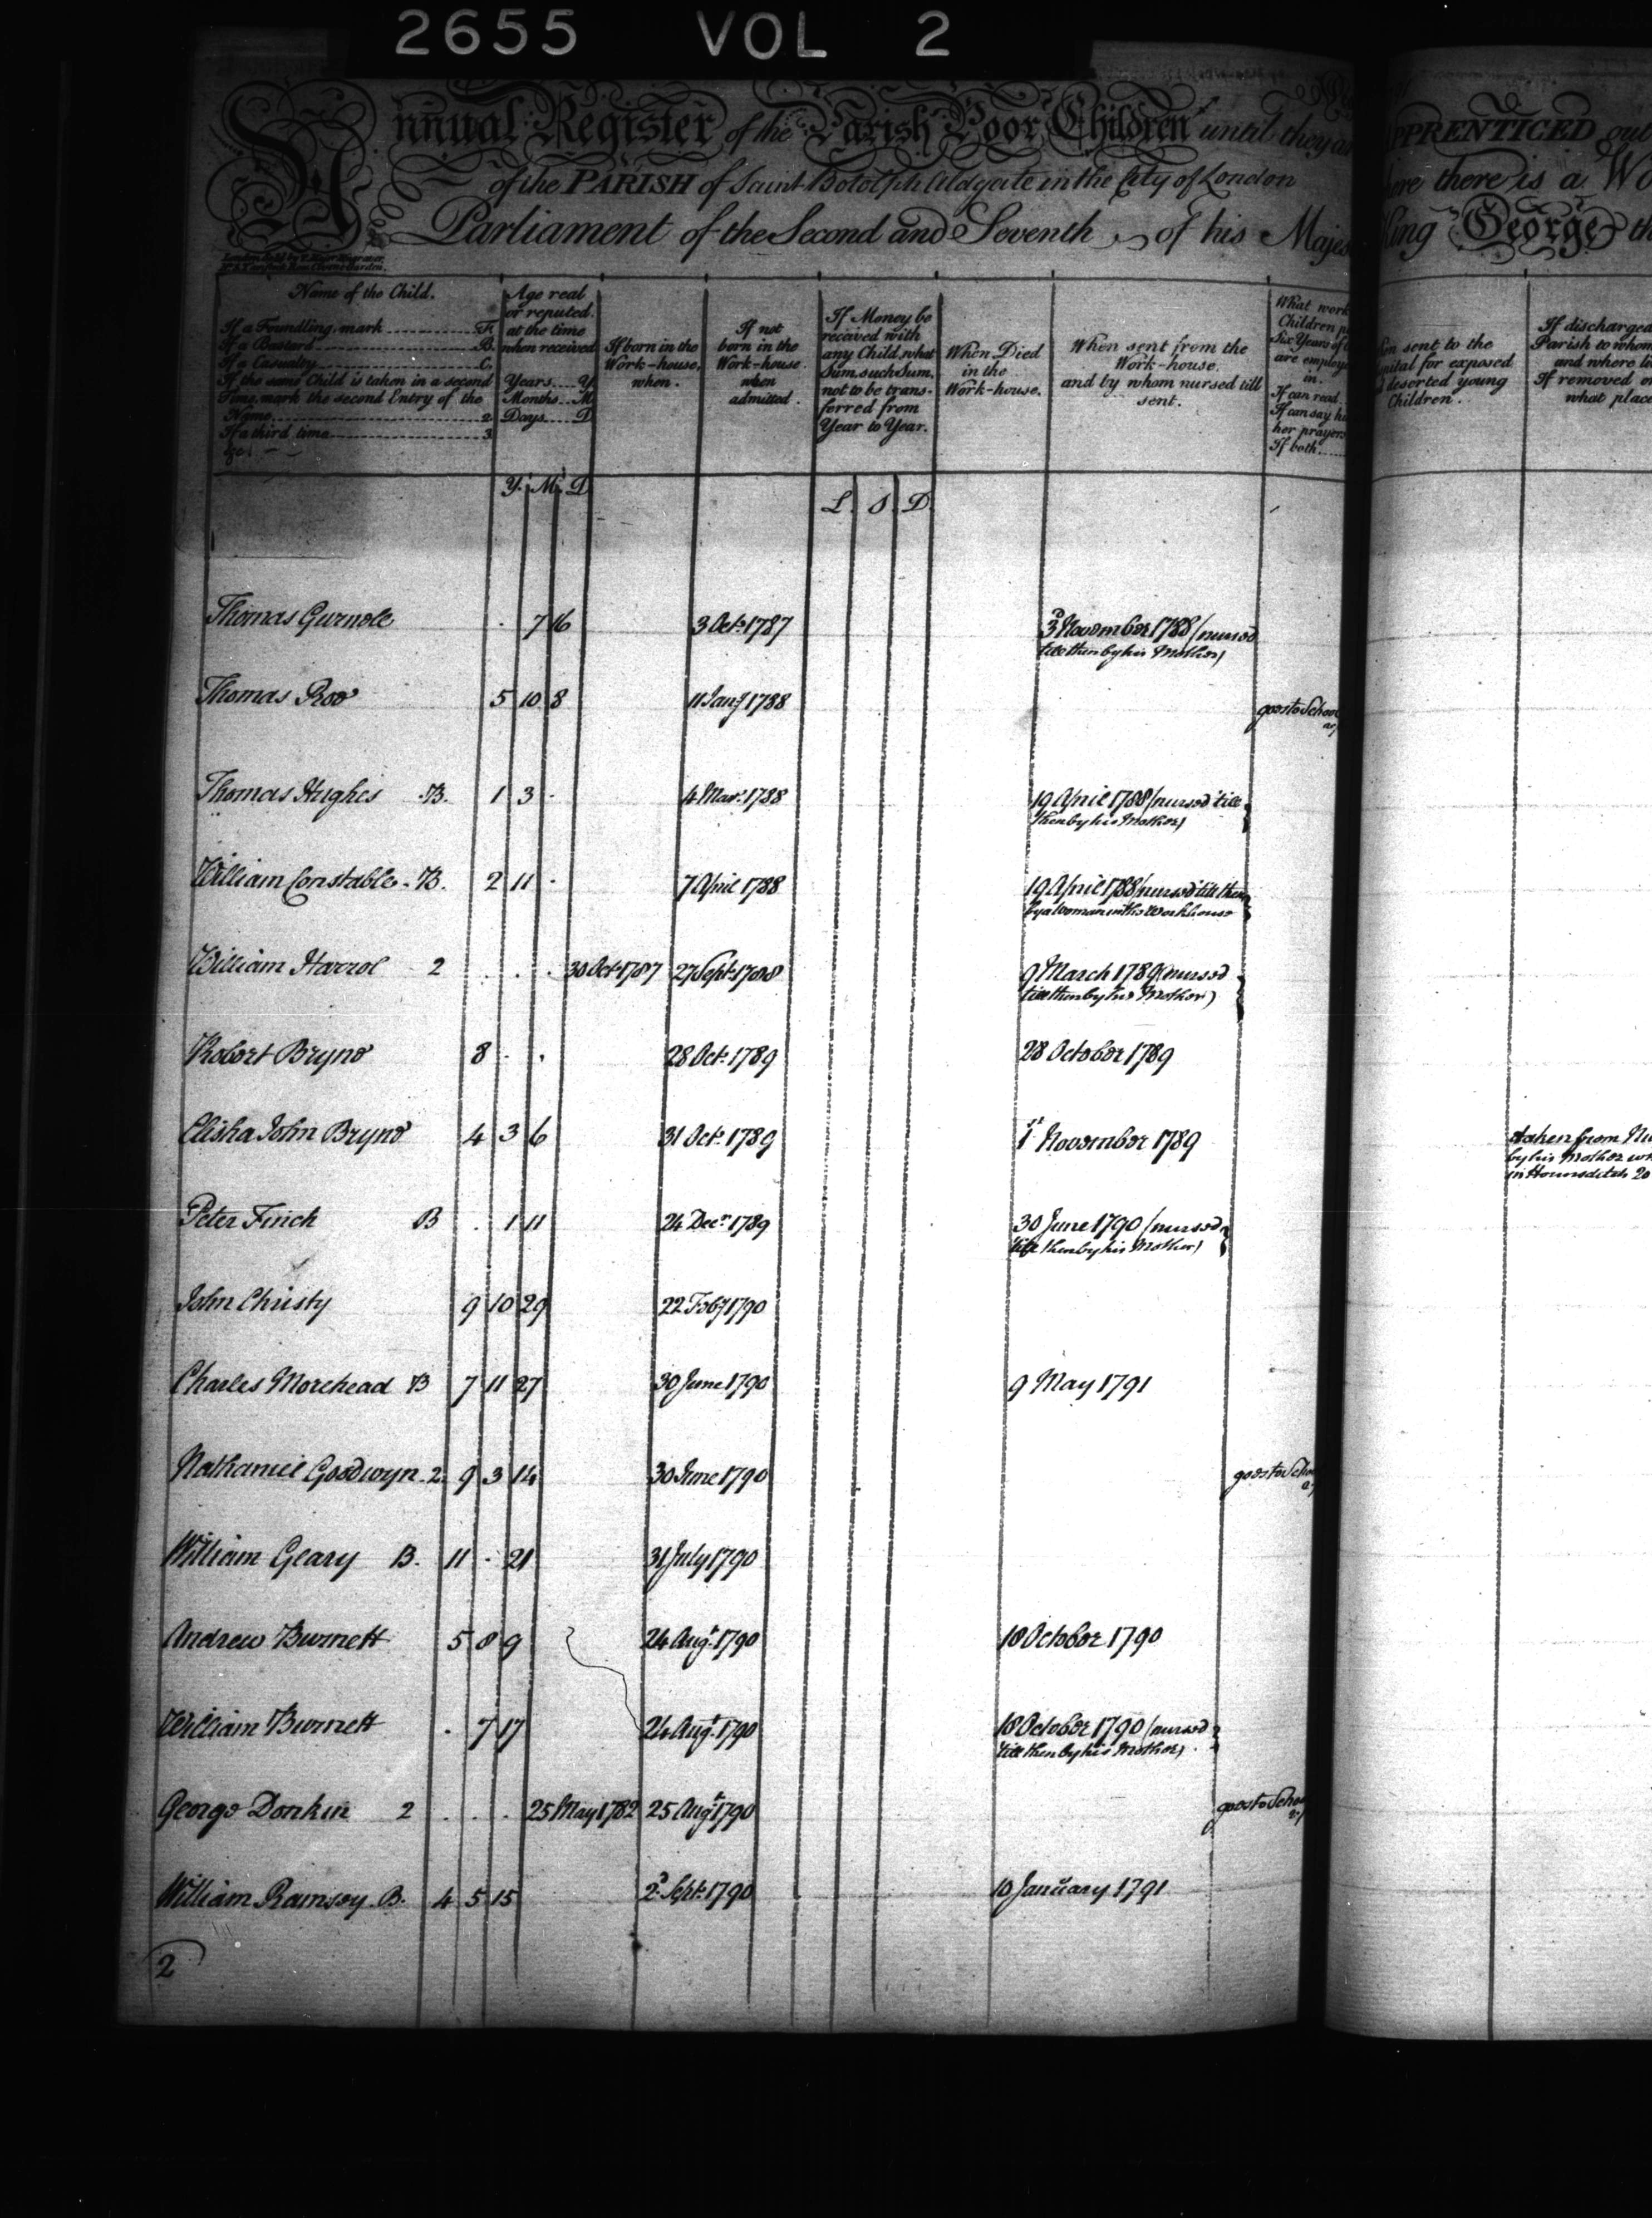 2655 VOL 2
Annual Register of the Parish Poor Children until they are
of the PARISH of Saint Botolph Aldgate in the City of London
Parliament of the Second and Seventh of his Majes
APPRENTICED out
here there is a Wo
King George th
Name of the Child.
If a Foundling, mark F.
If a Bastard B.
If a Casualty C.
If the same Child is taken in a second
Time, mark the second Entry of the
Name 2
If a third time 3
&c.
Age real
or reputed
at the time
when received
Years Y.
Months M.
Days D.
If born in the
Work-house,
when.
If not
born in the
Work-house
when
admitted.
If Money be
received with
any Child, what
Sum, such Sum,
not to be trans-
ferred from
Year to Year.
When Died
in the
Work-house.
When sent from the
Work-house.
and by whom nursed till
sent.
What work
Children
Six Years of
are employe
in.
If can read
If can say his
her prayers
If both
sent to the
pital for exposed
deserted young
Children.
If discharged
Parish to whom
and where
If removed
what place
Y. M. D.
L. S. D.
Thomas Gurnole . 7 16 3 Oct. 1787 3d November 1788 (nursed
till then by his Mother)
Thomas Roo 5 10 8 11 Jany 1788 goes to School
Thomas Hughes B. 1 3 . 4 Mar. 1788 19 April 1788 (nursed till
then by his Mother)
William Constable B. 2 11 . 7 April 1788 19 April 1788 (nursed till then
by a Woman in this Workhouse
William Harrol 2 . . . 30 Oct 1787 27 Sept. 1788 9 March 1789 (nursed
till then by his Mother)
Robert Bryne 8 . . 28 Oct. 1789 28 October 1789
Elisha John Bryne 4 3 6 31 Oct. 1789 1st November 1789 taken from Nu
by his Mother
in Houndsditch 20
Peter Finch B . 1 11 24 Decr. 1789 30 June 1790 (nursed
till then by his Mother)
John Christy 9 10 29 22 Feby 1790
Charles Morehead B 7 11 27 30 June 1790 9 May 1791
Nathaniel Goodwyn 2. 9 3 14 30 June 1790 goes to Schoo
William Geary B. 11 . 21 31 July 1790
Andrew Burnett 5 8 9 24 Augt. 1790 18 October 1790
William Burnett . 7 17 24 Augt. 1790 18 October 1790 (nursed
till then by his Mother)
George Donkin 2 . . . 25 May 1782 25 Augt 1790 goes to Schoo
William Ramsey B. 4 5 15 2d Sept. 1790 10 January 1791
2